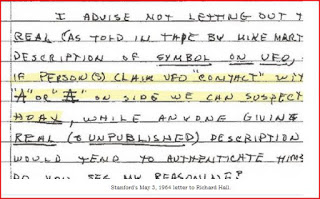 I ADVISE NOT LETTING OUT
REAL (AS TOLD IN TAPE BY MIKE MART
DESCRIPTION OF SYMBOL ON UFO,
IF PERSON(S) CLAIM UFO "CONTACT" WIT
"A" OR "A" ON SIDE WE CAN SUSPECT
HOAX, WHILE ANYONE GIVING
REAL (& UNPUBLISHED) DESCRIPTION
WOULD TEND TO AUTHENTICATE HIMS
DO YOU SEE MY REASONING?
Stanford's May 3, 1964 letter to Richard Hall.